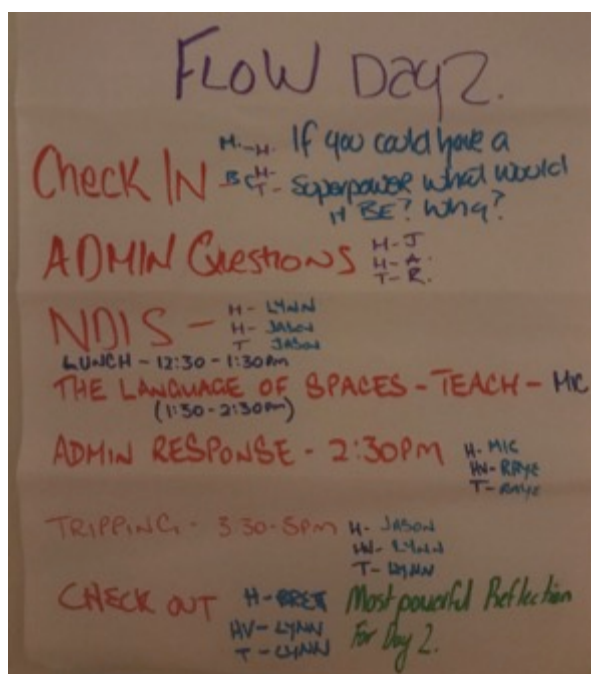 FLOW Day 2.
Check IN H. - H - If you could have a
T - Superpower what would
it BE? Why?
ADMIN Questions H - J
H - A.
T - R.
NDIS - H - LYNN
H - JASON
T JASON
LUNCH - 12:30 - 1:30pm
THE LANGUAGE OF SPACES - TEACH - MIC
(1:30 - 2:30pm)
ADMIN RESPONSE - 2:30PM H - MIC
HV - RAYE
T - RAYE
TRIPPING - 3:30 - 5pm H - JASON
HV - LYNN
T - LYNN
CHECK OUT H - BRET Most powerful Reflection
HV - LYNN For Day 2.
T - LYNN